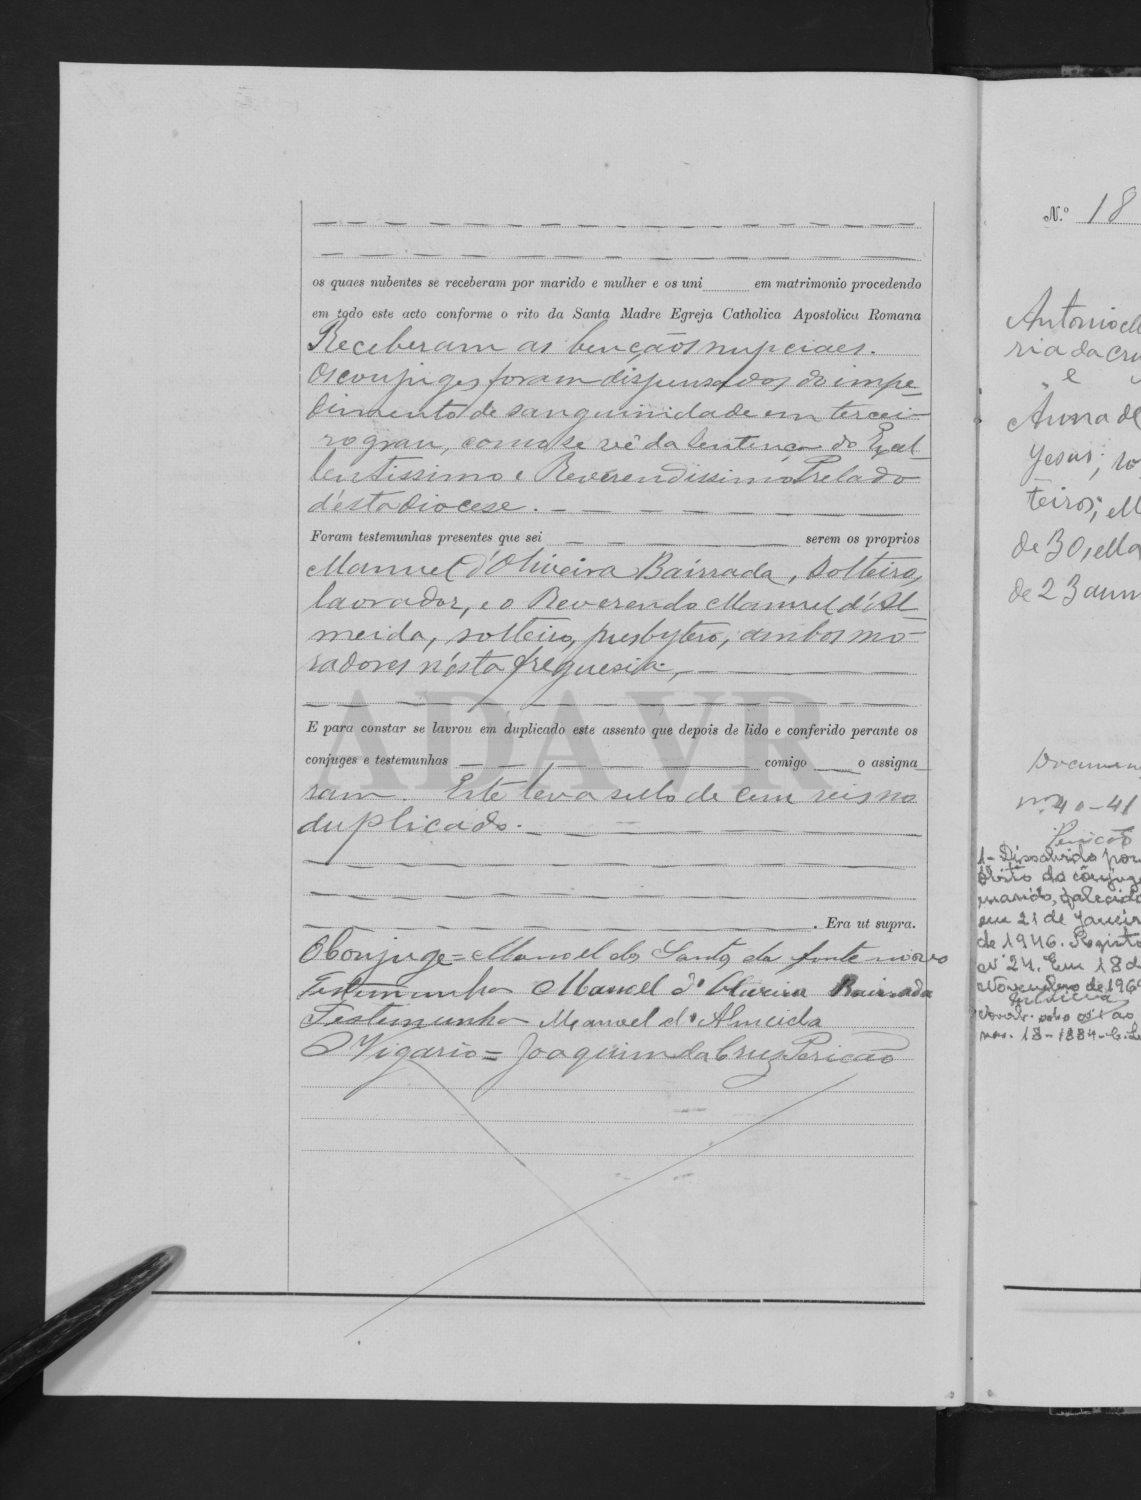 os quaes nubentes se receberam por marido e mulher e os uni em matrimonio procedendo
em todo este acto conforme o rito da Santa Madre Egreja Catholica Apostolica Romana
Receberam as bençãos nupciaes.
Os conjuges foram dispensados do impe-
dimento de sanguinidade em tercei-
ro grau, como se vê da Sentença do Excel-
lentissimo e Reverendissimo Prelado
d'esta diocese.
Foram testemunhas presentes que sei serem os proprios
Manuel d'Oliveira Bairrada, solteiro,
lavrador, e o Reverendo Manuel d'Al-
meida, solteiro, presbytero, ambos mo-
radores n'esta freguesia,
ADAVR
E para constar se lavrou em duplicado este assento que depois de lido e conferido perante os
conjuges e testemunhas comigo o assigna
ram. Este leva sello de cem reis no
duplicado.
. Era ut supra.
O Conjuge = Manoel dos Santos da fonte nova
Testemunha Manoel d'Oliveira Bairrada
Testimunha Manoel d'Almeida
O Vigario = Joaquim da Cruz Pericão
N.º 18
Antonio M
ria da Cru
e
Anna de
Jesus; so
teiros; M
de 30, ella
de 23 ann
Documen
nº 40-41
Pericão
1- Dissolvido por
óbito do cônjuge
marido, falecido
em 21 de Janeir
de 1946. Registo
nº 24. Em 18 d
Novembro de 196
nas. 18-1884-